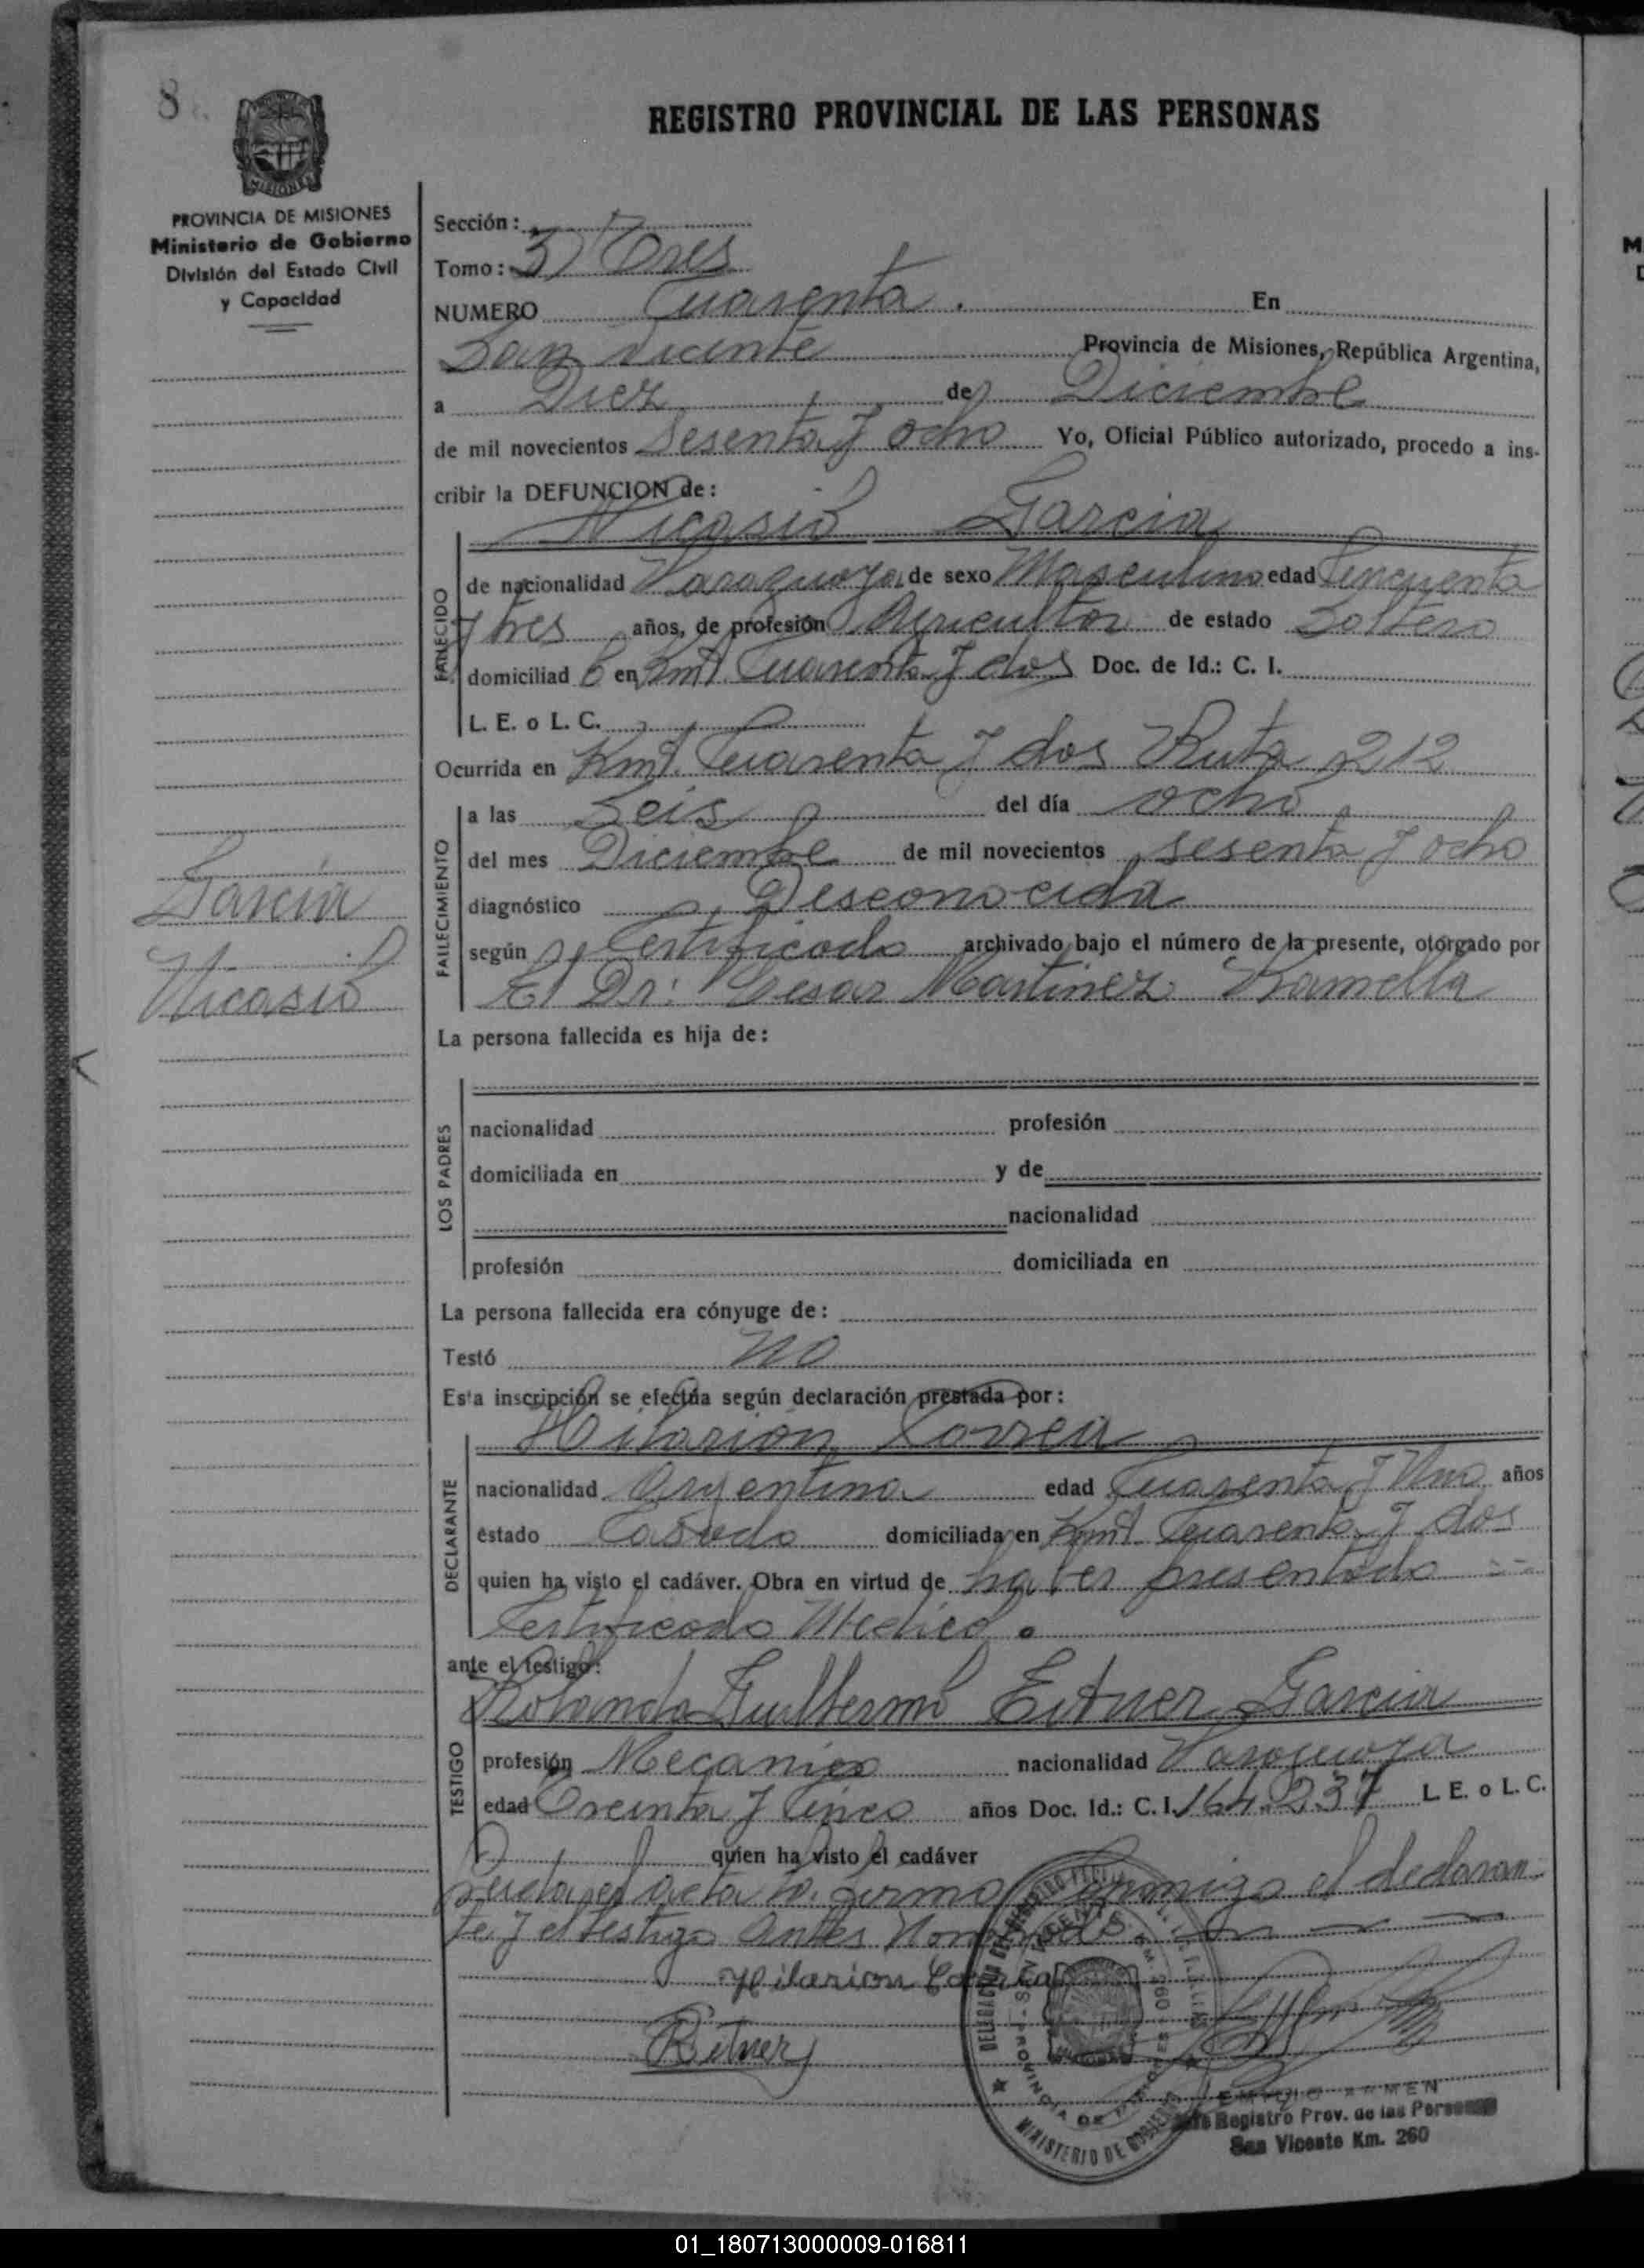 8
REGISTRO PROVINCIAL DE LAS PERSONAS
MISIONES
PROVINCIA DE MISIONES
Ministerio de Gobierno
División del Estado Civil
y Capacidad
Sección:
Tomo: 3) Tres
NUMERO Cuarenta . En
San Vicente Provincia de Misiones, República Argentina,
a Diez de Diciembre
de mil novecientos Sesenta y ocho Yo, Oficial Público autorizado, procedo a ins-
cribir la DEFUNCION de:
Nicasio Garcia
FALLECIDO
de nacionalidad Paraguaya de sexo Masculino edad Cincuenta
y tres años, de profesión Agricultor de estado Soltero
domiciliad o en Kmt. Cuarenta y dos Doc. de Id.: C. I.
L. E. o L. C.
Ocurrida en Kmt. Cuarenta y dos Ruta 212
FALLECIMIENTO
a las Seis del día ocho
del mes Diciembre de mil novecientos sesenta y ocho
diagnóstico Desconocida
según Certificado archivado bajo el número de la presente, otorgado por
El Dr: Cesar Martinez Ramella
Garcia
Nicasio
La persona fallecida es hija de:
LOS PADRES
nacionalidad profesión
domiciliada en y de
nacionalidad
profesión domiciliada en
La persona fallecida era cónyuge de:
Testó no
Esta inscripción se efectúa según declaración prestada por:
Hilarion Correa
DECLARANTE
nacionalidad Argentina edad Cuarenta y Uno años
estado Casado domiciliada en Kmt. Cuarenta y dos
quien ha visto el cadáver. Obra en virtud de haber presentado
Certificado Medico.
ante el testigo:
Rolando Guillermo Eitner Garcia
TESTIGO
profesión Mecanico nacionalidad Paraguaya
edad Treinta y Cinco años Doc. Id.: C. I. 164.237 L. E. o L. C.
quien ha visto el cadáver
acta la firma Conmigo el declaran-
te y el testigo Antes Nombrado
Hilarion Correa
Eitner
MINISTERIO DE GOBIERNO
PROVINCIA DE MISIONES
Registro Prov. de las Personas
San Vicente Km. 260
01_180713000009-016811